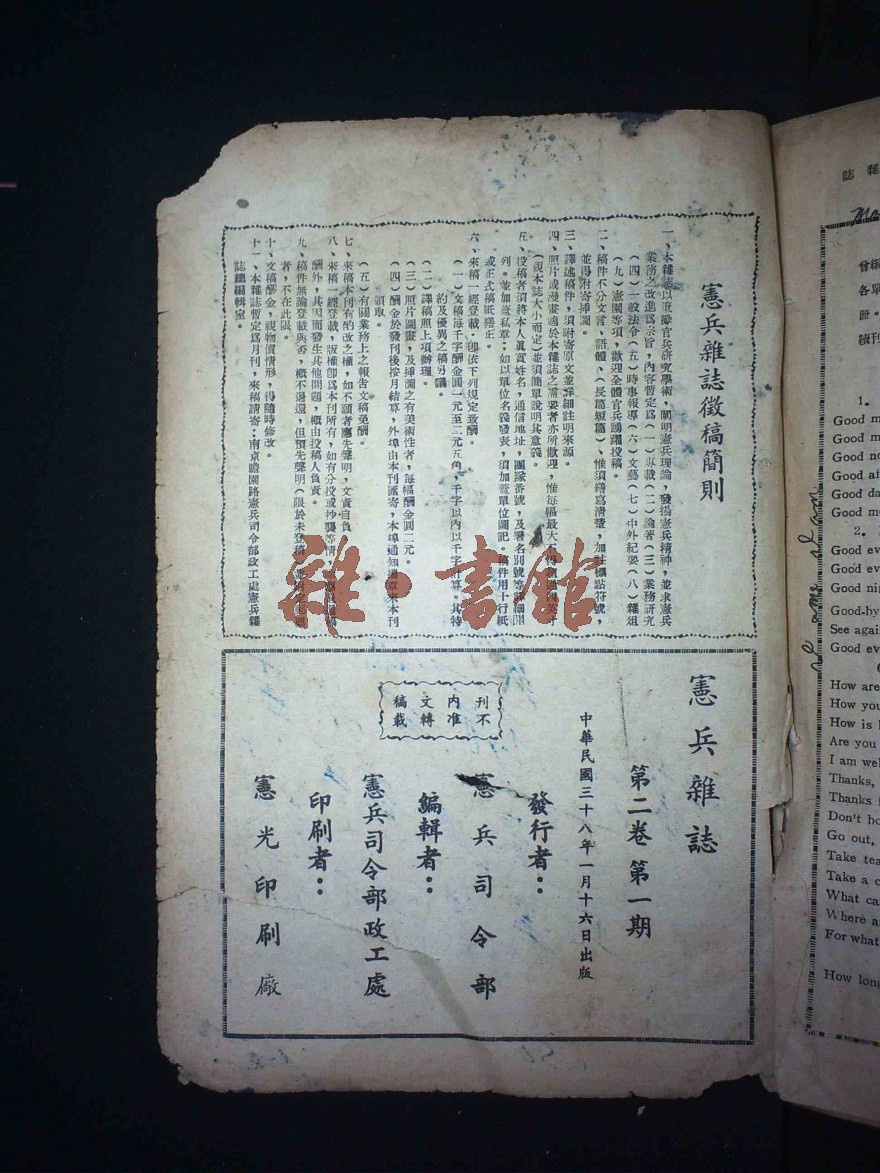 憲兵雜誌徵稿簡則
一、本雜誌以鼓勵官兵研究學術，闡明憲兵理論，發揚憲兵精神，並求憲兵
業務之改進爲宗旨，內容暫定爲（一）專載（二）論著（三）業務研究
（四）一般法令（五）時事報導（六）文藝（七）中外紀要（八）雜俎
（九）憲園等項，歡迎全體官兵踴躍投稿。
二、稿件不分文言、語體、（長篇短篇）、惟須繕寫清楚，加註標點符號，
並得附寄揷圖。
三、譯述稿件，須附寄原文並詳細註明來源。
四、照片或漫畫適於本雜誌之需要者亦所歡迎，惟每幅最大不得
（視本誌大小而定）並須簡單說明其意義。
五、投稿者須將本人眞實姓名，通信地址，團隊番號，及署名別號等詳細開
列。並加蓋私章；如以單位名義發表，須加蓋單位圖記。稿件用十行紙
或正式稿紙繕正。
六、來稿一經登載，卽依下列規定致酬。
（一）文稿每千字酬金圓一元至二元五角，千字以內以千字計算。其特
約及優異之稿另議。
（二）譯稿照上項辦理。
（三）照片圖畫，及揷圖之有美術性者，每幅酬金圓二元。
（四）酬金於發刊後按月結算，外埠由本刊匯寄，本埠通知 來本刊
領取。
（五）有關業務上之報告文稿免酬。
七、來稿本刊有酌改之權，如不願者應先聲明，文責自負。
八、來稿一經登載，版權卽爲本刊所有，如有分投或抄襲等情
酬外，其因而發生其他問題，概由投稿人負責。
九、稿件無論登載與否，概不退還，但預先聲明（限於未登稿
者，不在此限。
十、文稿酬金，視物價情形，得隨時修改。
十一、本雜誌暫定爲月刊，來稿請寄：南京瞻園路憲兵司令部政工處憲兵雜
誌總編輯室。
憲兵雜誌
第二卷第一期
中華民國三十八年一月十六日出版
發行者：
憲兵司令部
編輯者：
憲兵司令部政工處
印刷者：
憲光印刷廠
刊不
內准
文轉
稿載
雜·書館
雜誌
各單
冊。
續刊
1.
Good m
Good m
Good no
Good af
Good da
Good mo
2.
Good eve
Good ev
Good nig
Good-by
See agai
Good ev
How are
How you
How is
Are you
I am wel
Thanks,
Thanks
Don't bo
Go out,
Take tea
Take a c
What ca
Where a
For what
How long